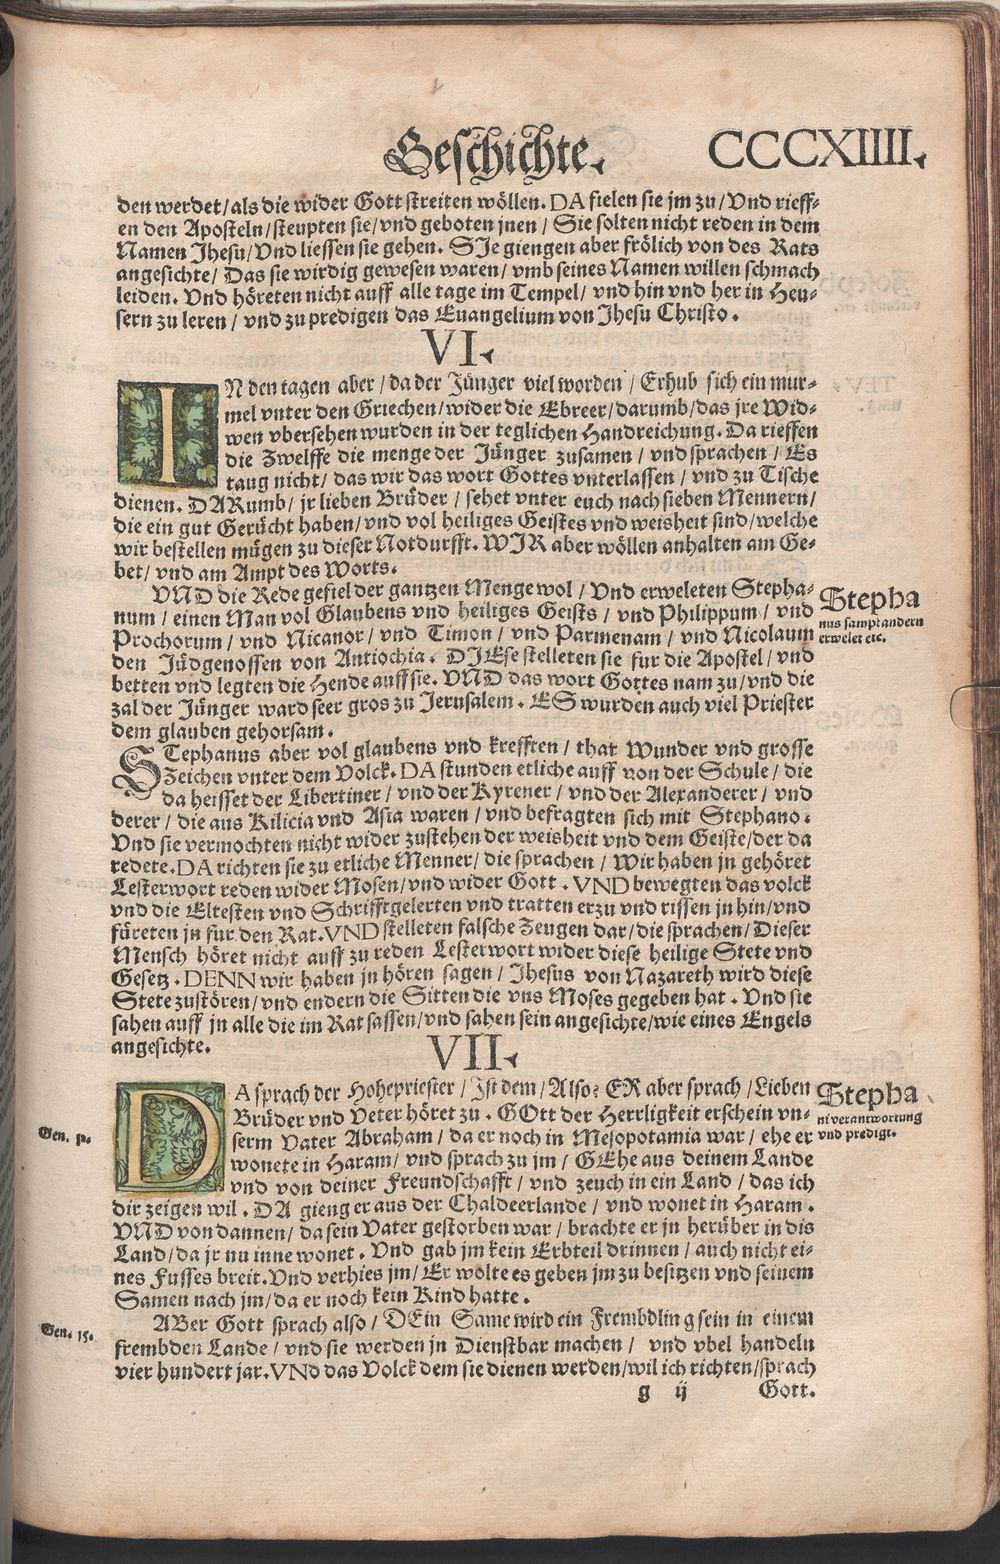 Geschichte.
CCCXIIII.
den werdet/als die wider Gott streiten wöllen. DA fielen sie jm zu/Vnd rieff-
en den Aposteln/steupten sie/vnd geboten jnen/Sie solten nicht reden in dem
Namen Jhesu/Vnd liessen sie gehen. SJe giengen aber frölich von des Rats
angesichte/Das sie wirdig gewesen waren/vmb seines Namen willen schmach
leiden. Vnd höreten nicht auff alle tage im Tempel/vnd hin vnd her in Heu-
sern zu leren/vnd zu predigen das Euangelium von Jhesu Christo.
VI.
IN den tagen aber/da der Jünger viel worden/Erhub sich ein mur-
mel vnter den Griechen/wider die Ebreer/darumb/das jre Wid-
wen vbersehen wurden in der teglichen Handreichung. Da rieffen
die Zwelffe die menge der Jünger zusamen/vnd sprachen/Es
taug nicht/das wir das wort Gottes vnterlassen/vnd zu Tische
dienen. DARumb/jr lieben Brüder/sehet vnter euch nach sieben Mennern/
die ein gut Gerücht haben/vnd vol heiliges Geistes vnd weisheit sind/welche
wir bestellen mügen zu dieser Notdurfft. WJR aber wöllen anhalten am Ge-
bet/vnd am Ampt des Worts.
VND die Rede gefiel der gantzen Menge wol/Vnd erweleten Stepha-
num/einen Man vol Glaubens vnd heiliges Geists/vnd Philippum/vnd
Prochorum/vnd Nicanor/vnd Timon/vnd Parmenam/vnd Nicolaum
den Jüdgenossen von Antiochia. DJEse stelleten sie fur die Apostel/vnd
betten vnd legten die Hende auff sie. VND das wort Gottes nam zu/vnd die
zal der Jünger ward seer gros zu Jerusalem. ES wurden auch viel Priester
dem glauben gehorsam.
Stepha
nus sampt andern
erwelet etc.
STephanus aber vol glaubens vnd krefften/that Wunder vnd grosse
Zeichen vnter dem Volck. DA stunden etliche auff von der Schule/die
da heisset der Libertiner/vnd der Kyrener/vnd der Alexanderer/vnd
derer/die aus Kilicia vnd Asia waren/vnd befragten sich mit Stephano.
Vnd sie vermochten nicht wider zustehen der weisheit vnd dem Geiste/der da
redete. DA richten sie zu etliche Menner/die sprachen/Wir haben jn gehöret
Lesterwort reden wider Mosen/vnd wider Gott. VND bewegten das volck
vnd die Eltesten vnd Schrifftgelerten vnd tratten erzu vnd rissen jn hin/vnd
füreten jn fur den Rat. VND stelleten falsche Zeugen dar/die sprachen/Dieser
Mensch höret nicht auff zu reden Lesterwort wider diese heilige Stete vnd
Gesetz. DENN wir haben jn hören sagen/Jhesus von Nazareth wird diese
Stete zustören/vnd endern die Sitten die vns Moses gegeben hat. Vnd sie
sahen auff jn alle die im Rat sassen/vnd sahen sein angesichte/wie eines Engels
angesichte.
VII.
DA sprach der Hohepriester/Ist dem/Also? ER aber sprach/Lieben
Brüder vnd Veter höret zu. GOtt der Herrligkeit erschein vn-
serm Vater Abraham/da er noch in Mesopotamia war/ehe er
wonete in Haram/vnd sprach zu jm/GEhe aus deinem Lande
vnd von deiner Freundschafft/vnd zeuch in ein Land/das ich
dir zeigen wil. DA gieng er aus der Chaldeerlande/vnd wonet in Haram.
VND von dannen/da sein Vater gestorben war/brachte er jn herüber in dis
Land/da jr nu inne wonet. Vnd gab jm kein Erbteil drinnen/auch nicht ei-
nes Fusses breit. Vnd verhies jm/Er wolte es geben jm zu besitzen vnd seinem
Samen nach jm/da er noch kein Kind hatte.
Stepha
ni verantwortung
vnd predigt.
Gen. 12.
ABer Gott sprach also/DEin Same wird ein Frembdling sein in einem
frembden Lande/vnd sie werden jn Dienstbar machen/vnd vbel handeln
vier hundert jar. VNd das Volck dem sie dienen werden/wil ich richten/sprach
Gen. 15.
g ij
Gott.